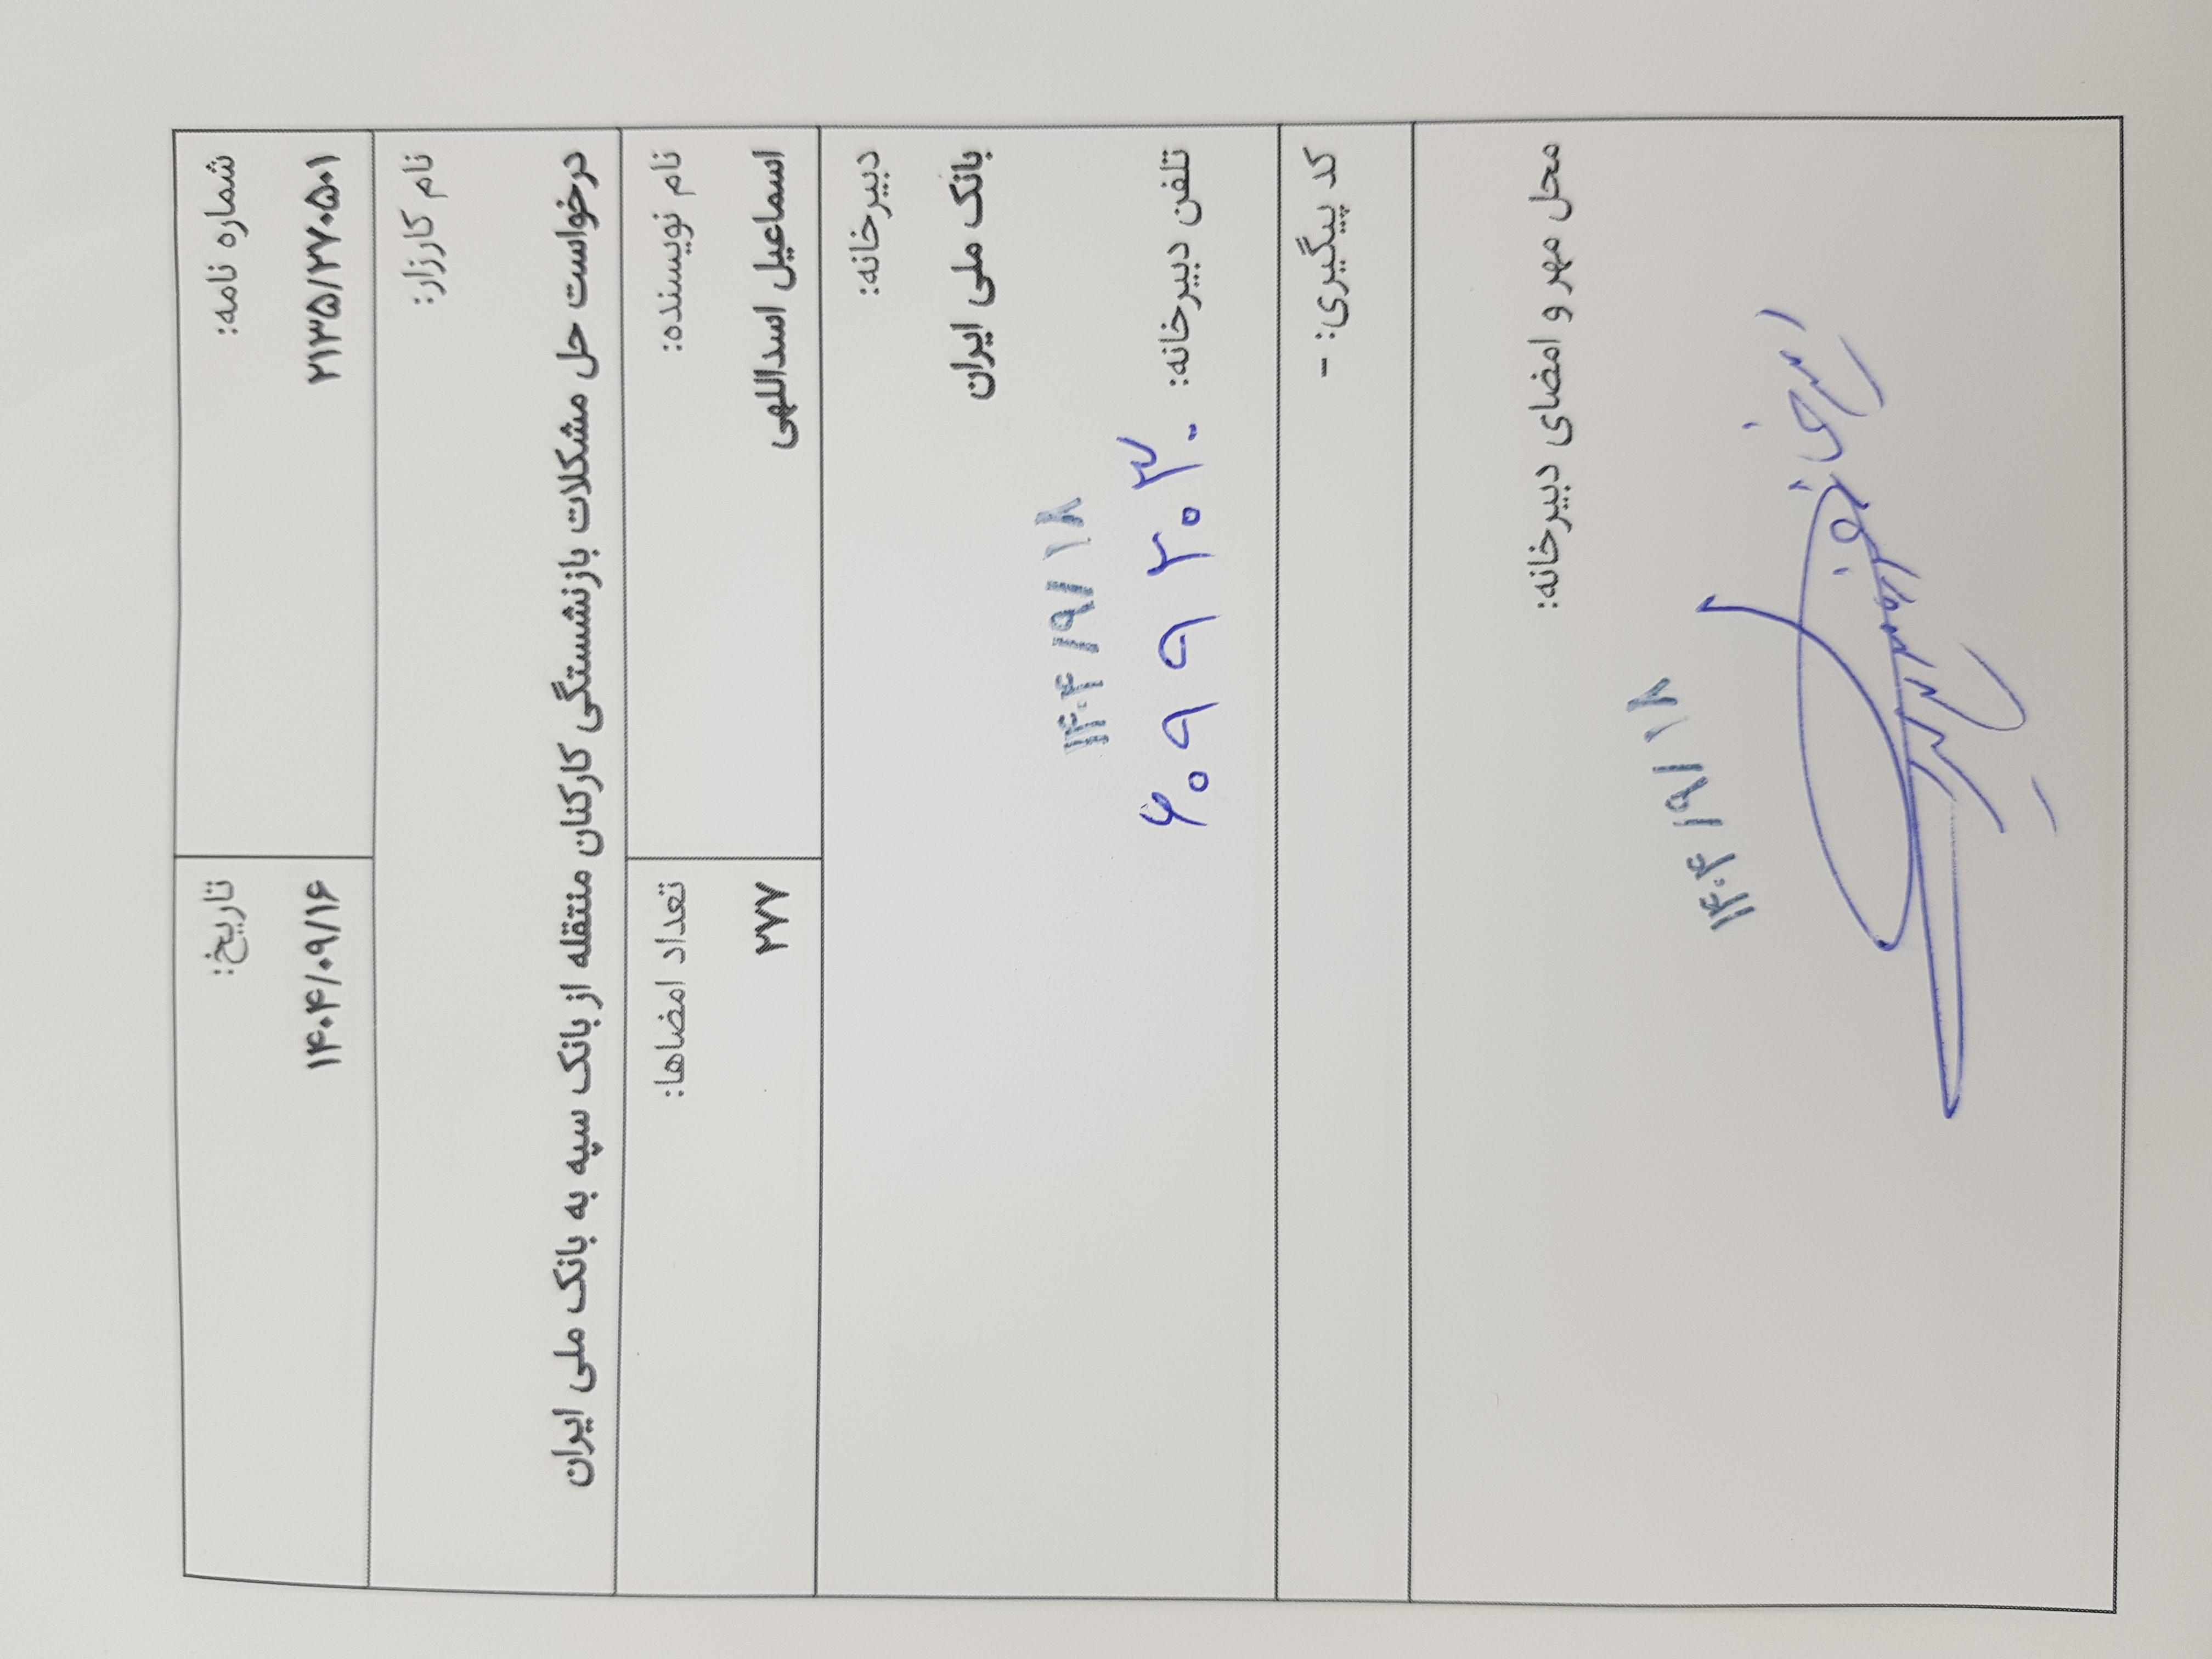 شماره نامه:
۲۱۳۵/۲۷۰۵۰۱
تاریخ:
۱۴۰۴/۰۹/۱۶
نام کارزار:
درخواست حل مشکلات بازنشستگی کارکنان منتقله از بانک سپه به بانک ملی ایران
نام نویسنده:
اسماعیل اسداللهی
تعداد امضاها:
۲۷۷
دبیرخانه:
بانک ملی ایران
۱۴۰۴/۹/۱۸
تلفن دبیرخانه: ۶۰۹۹۲۰۳۰
کد پیگیری: -
محل مهر و امضای دبیرخانه:
۱۴۰۴/۹/۱۸